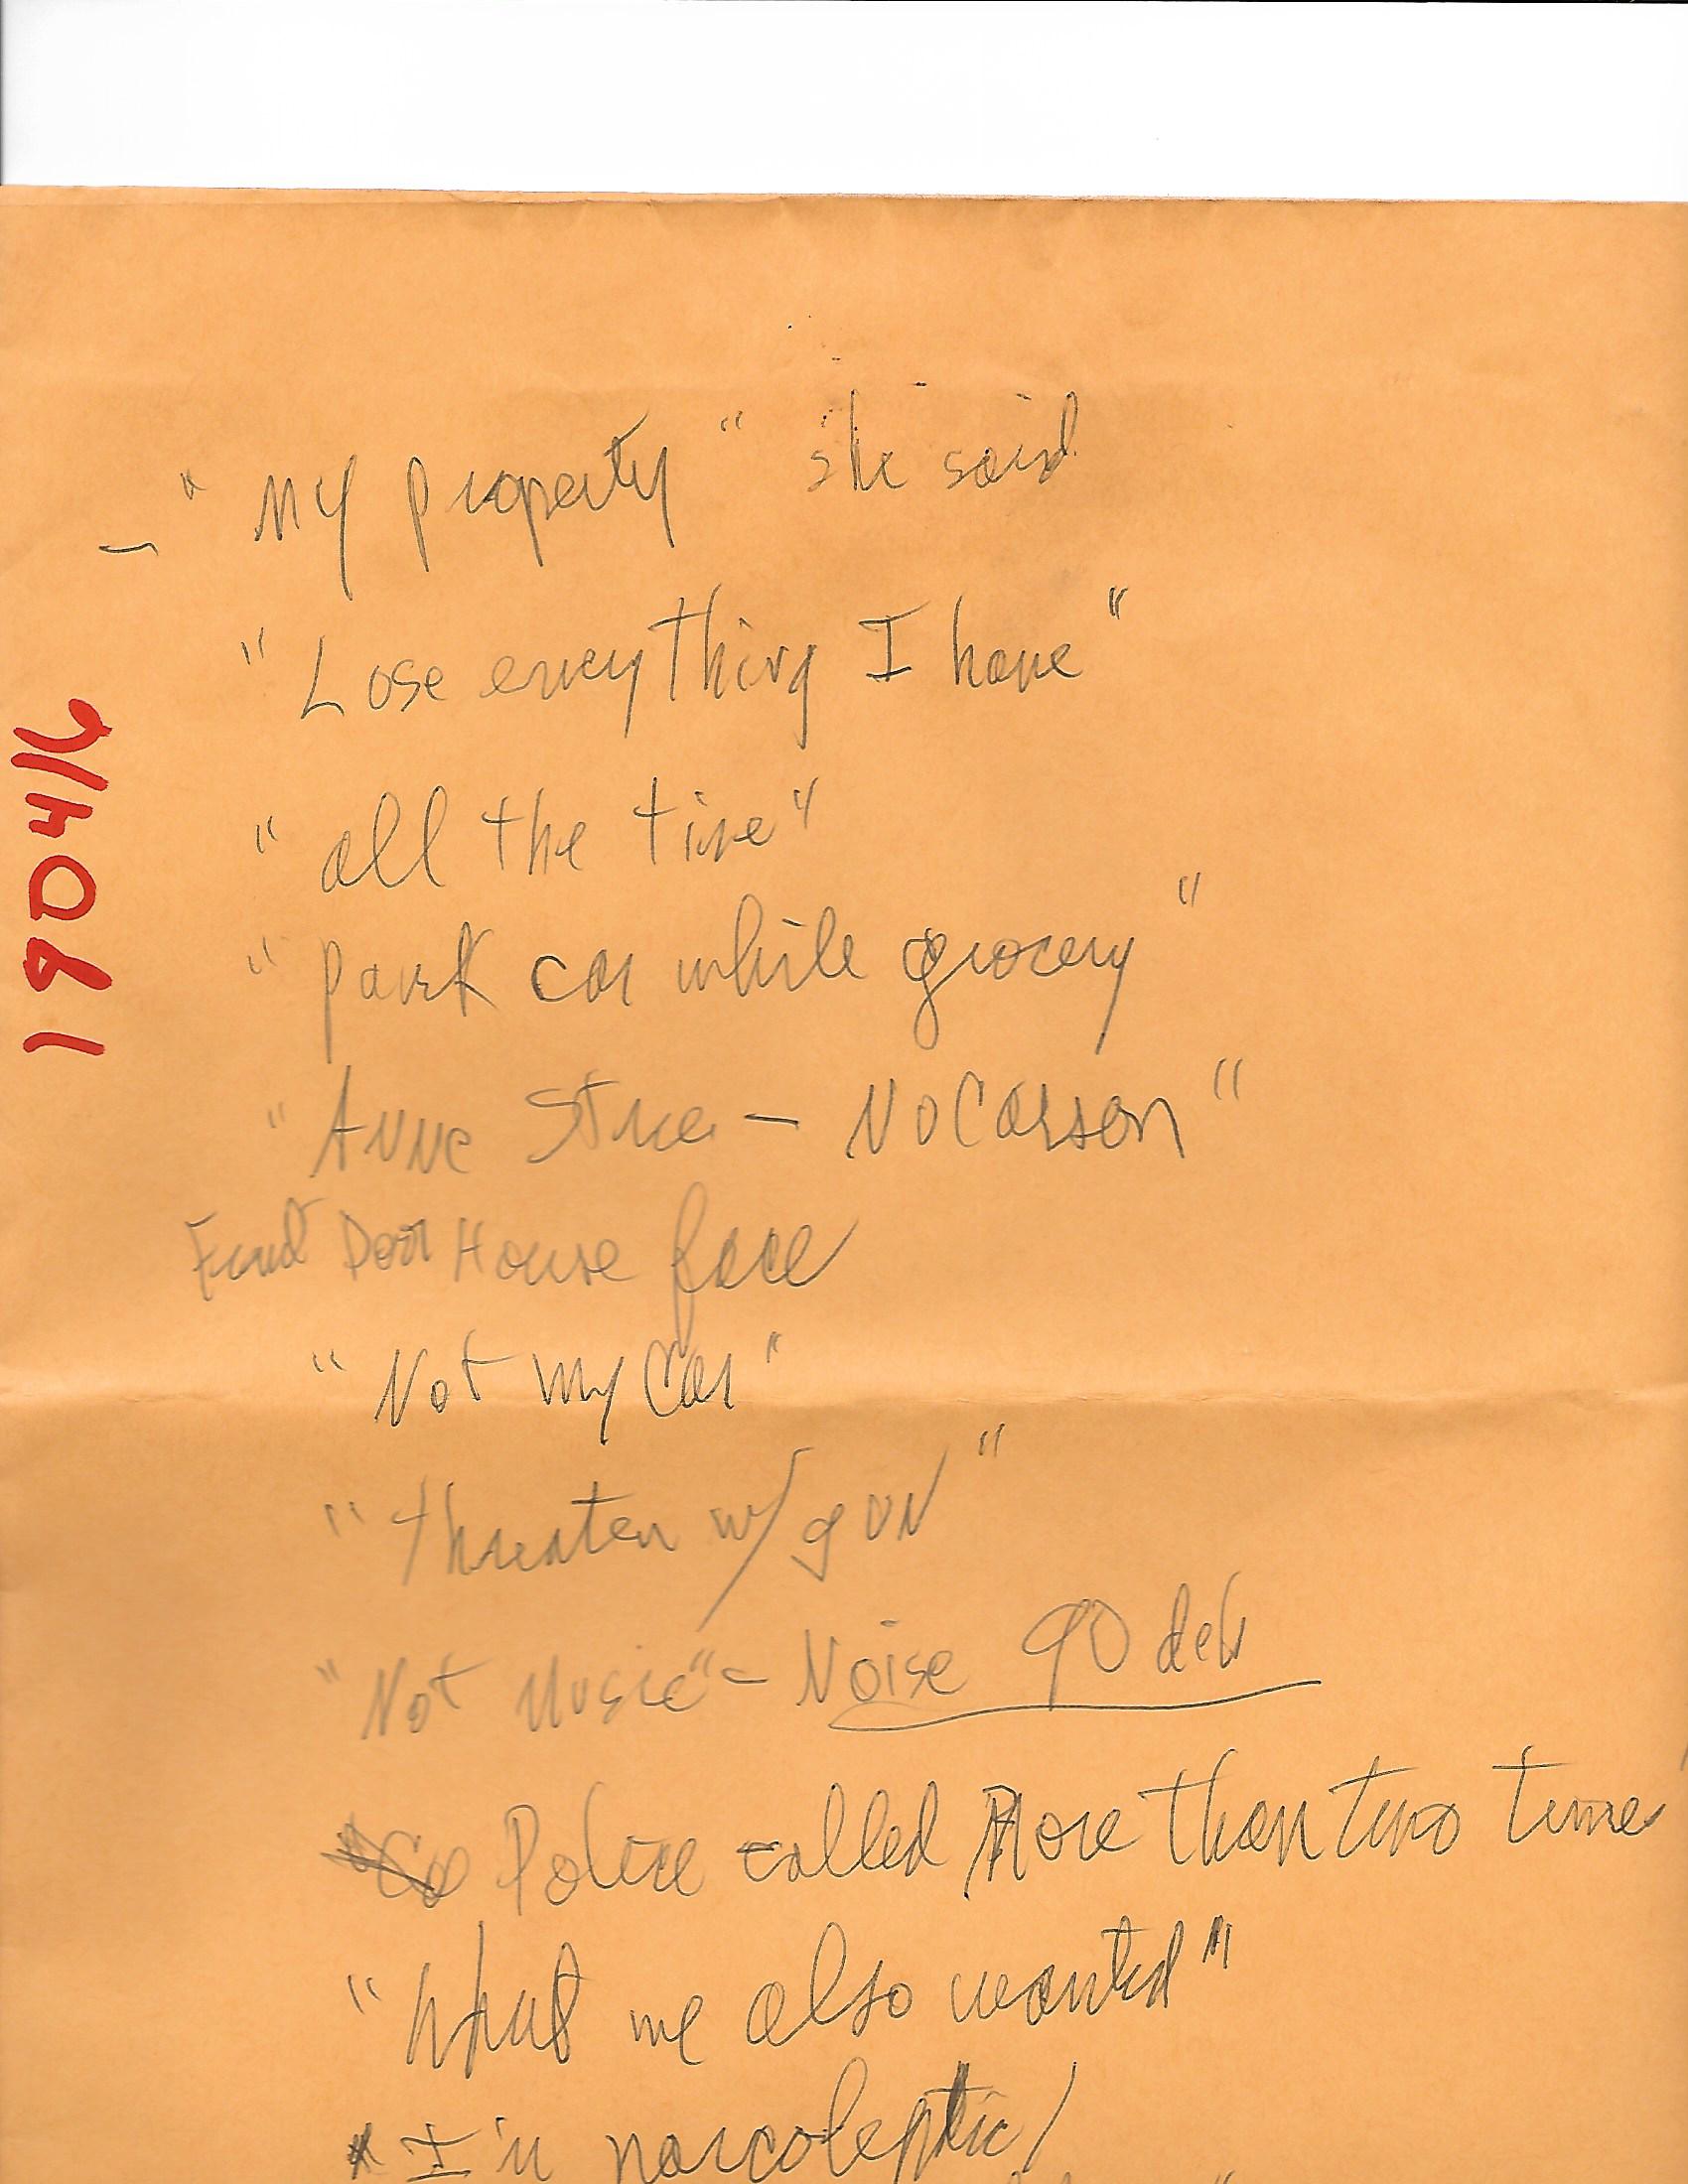 "My Property" she said
"Lose everything I have"
"all the time"
"Park car while grocery"
"Anne - No Carson"
Door House face
"Not my Car"
"threaten w/ gun"
"Not Music" - Noise 90 deb
Police called More than two time
"What we also wanted"
"I'm narcoleptic/
19041/6